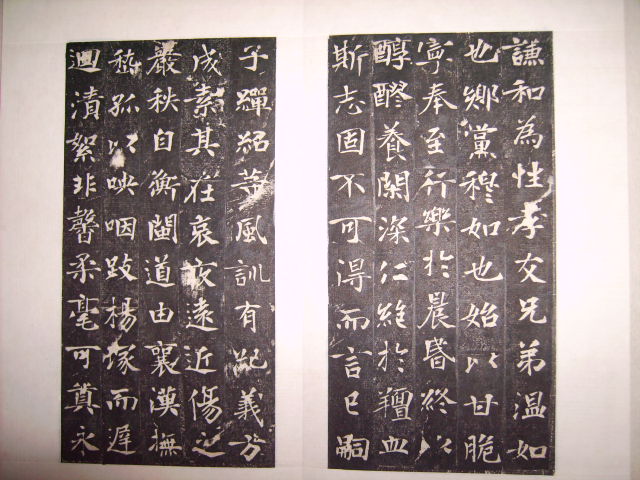 謙和為性孝友兄弟溫如
也鄉黨穆如也始以甘脆
寧奉至行樂於晨昏終以
醇醪養閑深仁維於羶血
斯志固不可得而言已嗣
子繟紹等風訓有紀義方
成素其在哀疚遠近傷之
嚴秩自衡閩道由襄漢撫
孤以咉咽跂楊塚而遲
迴漬絮非馨柔毫可寘永